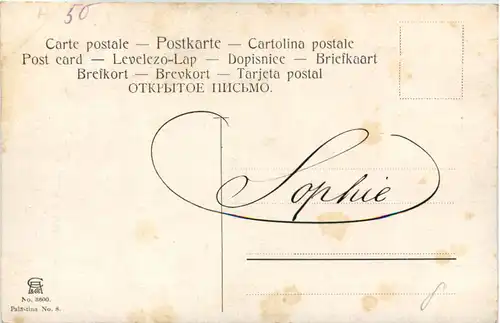 50
Carte postale — Postkarte — Cartolina postale
Post card — Levelezo-Lap — Dopisnice — Briefkaart
Brefkort — Brevkort — Tarjeta postal
ОТКРЫТОЕ ПИСЬМО.
Sophie
No. 3800.
Palästina No. 8.